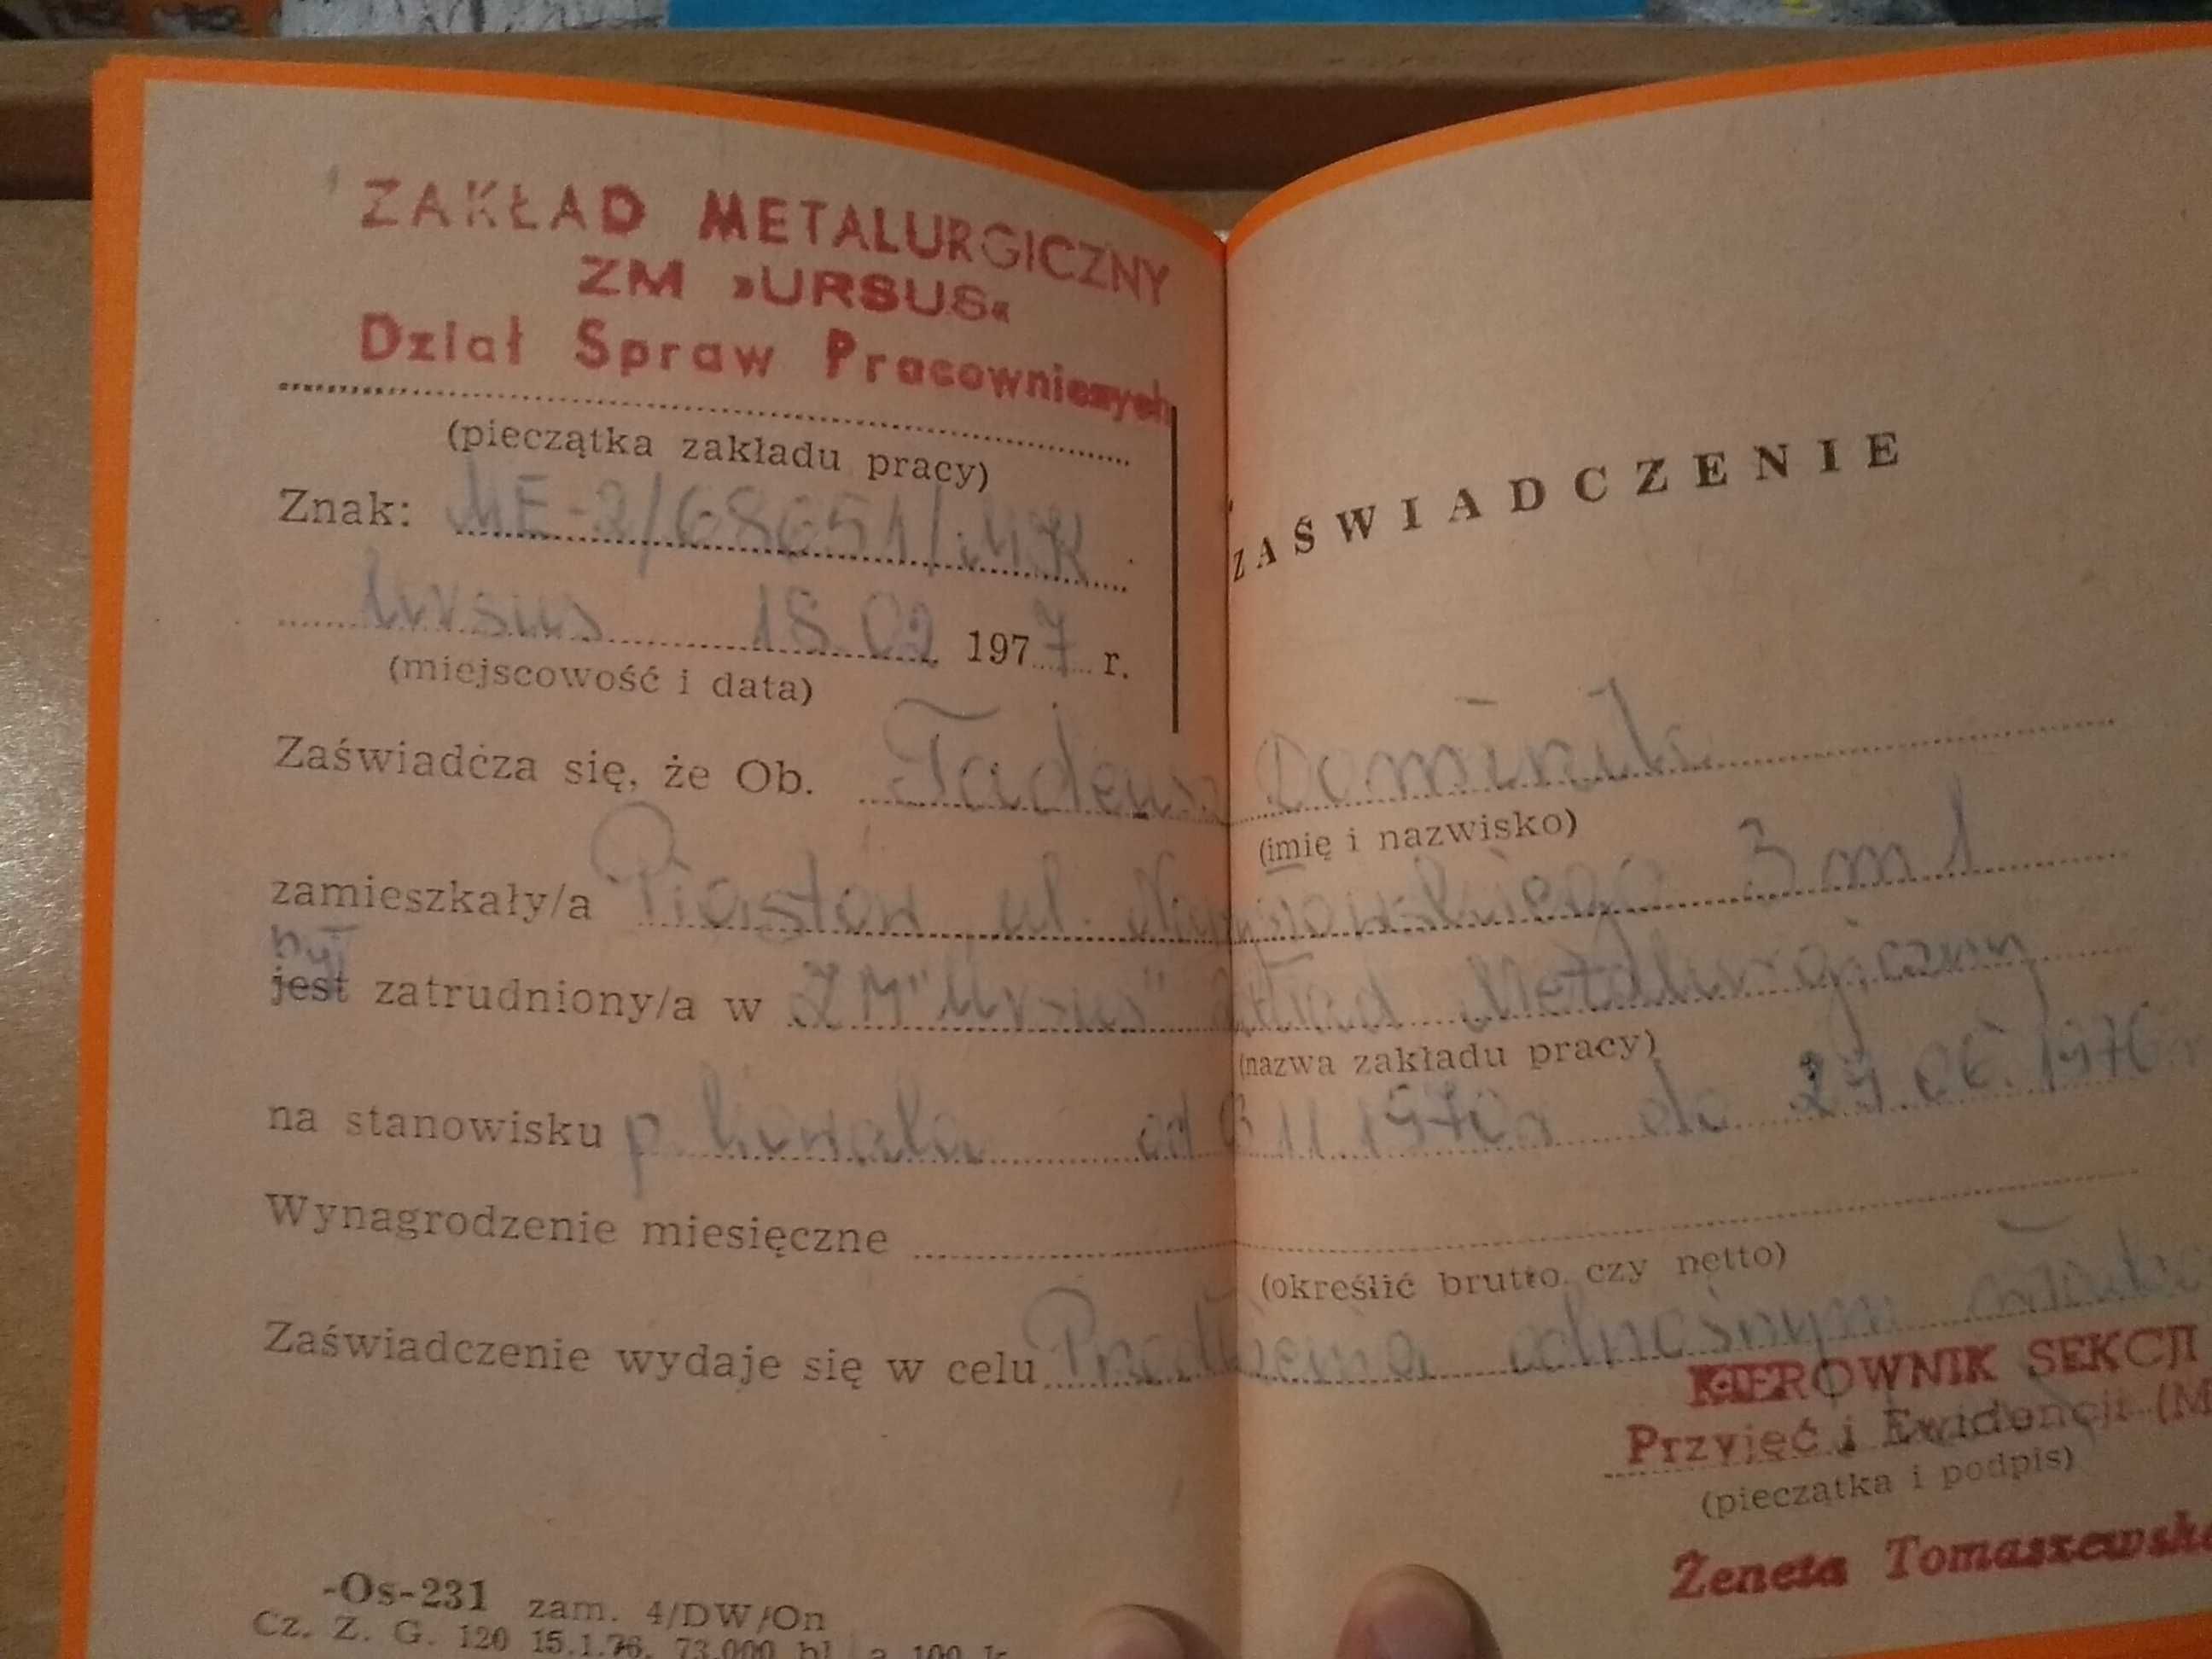 ZAKŁAD METALURGICZNY
ZM »URSUS«
Dział Spraw Pracowniczych
(pieczątka zakładu pracy)
Znak: ME-2/68651/MK
Ursus 18 02 1977 r.
(miejscowość i data)
ZAŚWIADCZENIE
Zaświadcza się, że Ob. Tadeusz Dominik
(imię i nazwisko)
zamieszkały/a Piastów ul. 3 m 1
był
jest zatrudniony/a w ZM "Ursus" Zakład Metalurgiczny
(nazwa zakładu pracy)
na stanowisku p. kowala od 3 11 1970r do 29 06 1976 r
Wynagrodzenie miesięczne
(określić brutto czy netto)
Zaświadczenie wydaje się w celu Przedłożenia odnośnym
KIEROWNIK SEKCJI
Przyjęć i Ewidencji (M
(pieczątka i podpis)
Żeneta Tomaszewska
-Os-231 zam. 4/DW/On
Cz. Z. G. 120 15.1.76. 73.000 bl. a 100 k